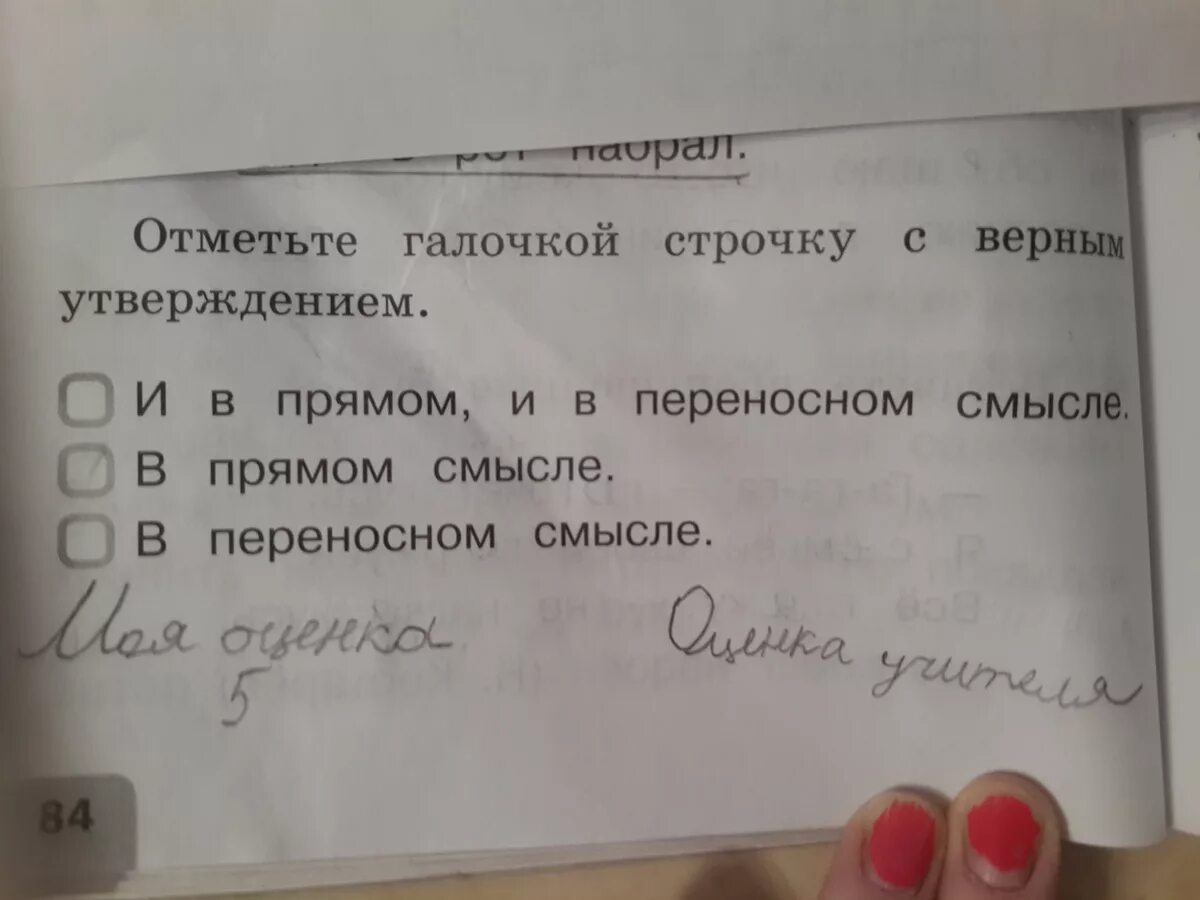 рот набрал.
Отметьте галочкой строчку с верным
утверждением.
И в прямом, и в переносном смысле.
В прямом смысле.
В переносном смысле.
Моя оценка Оценка учителя
5
84